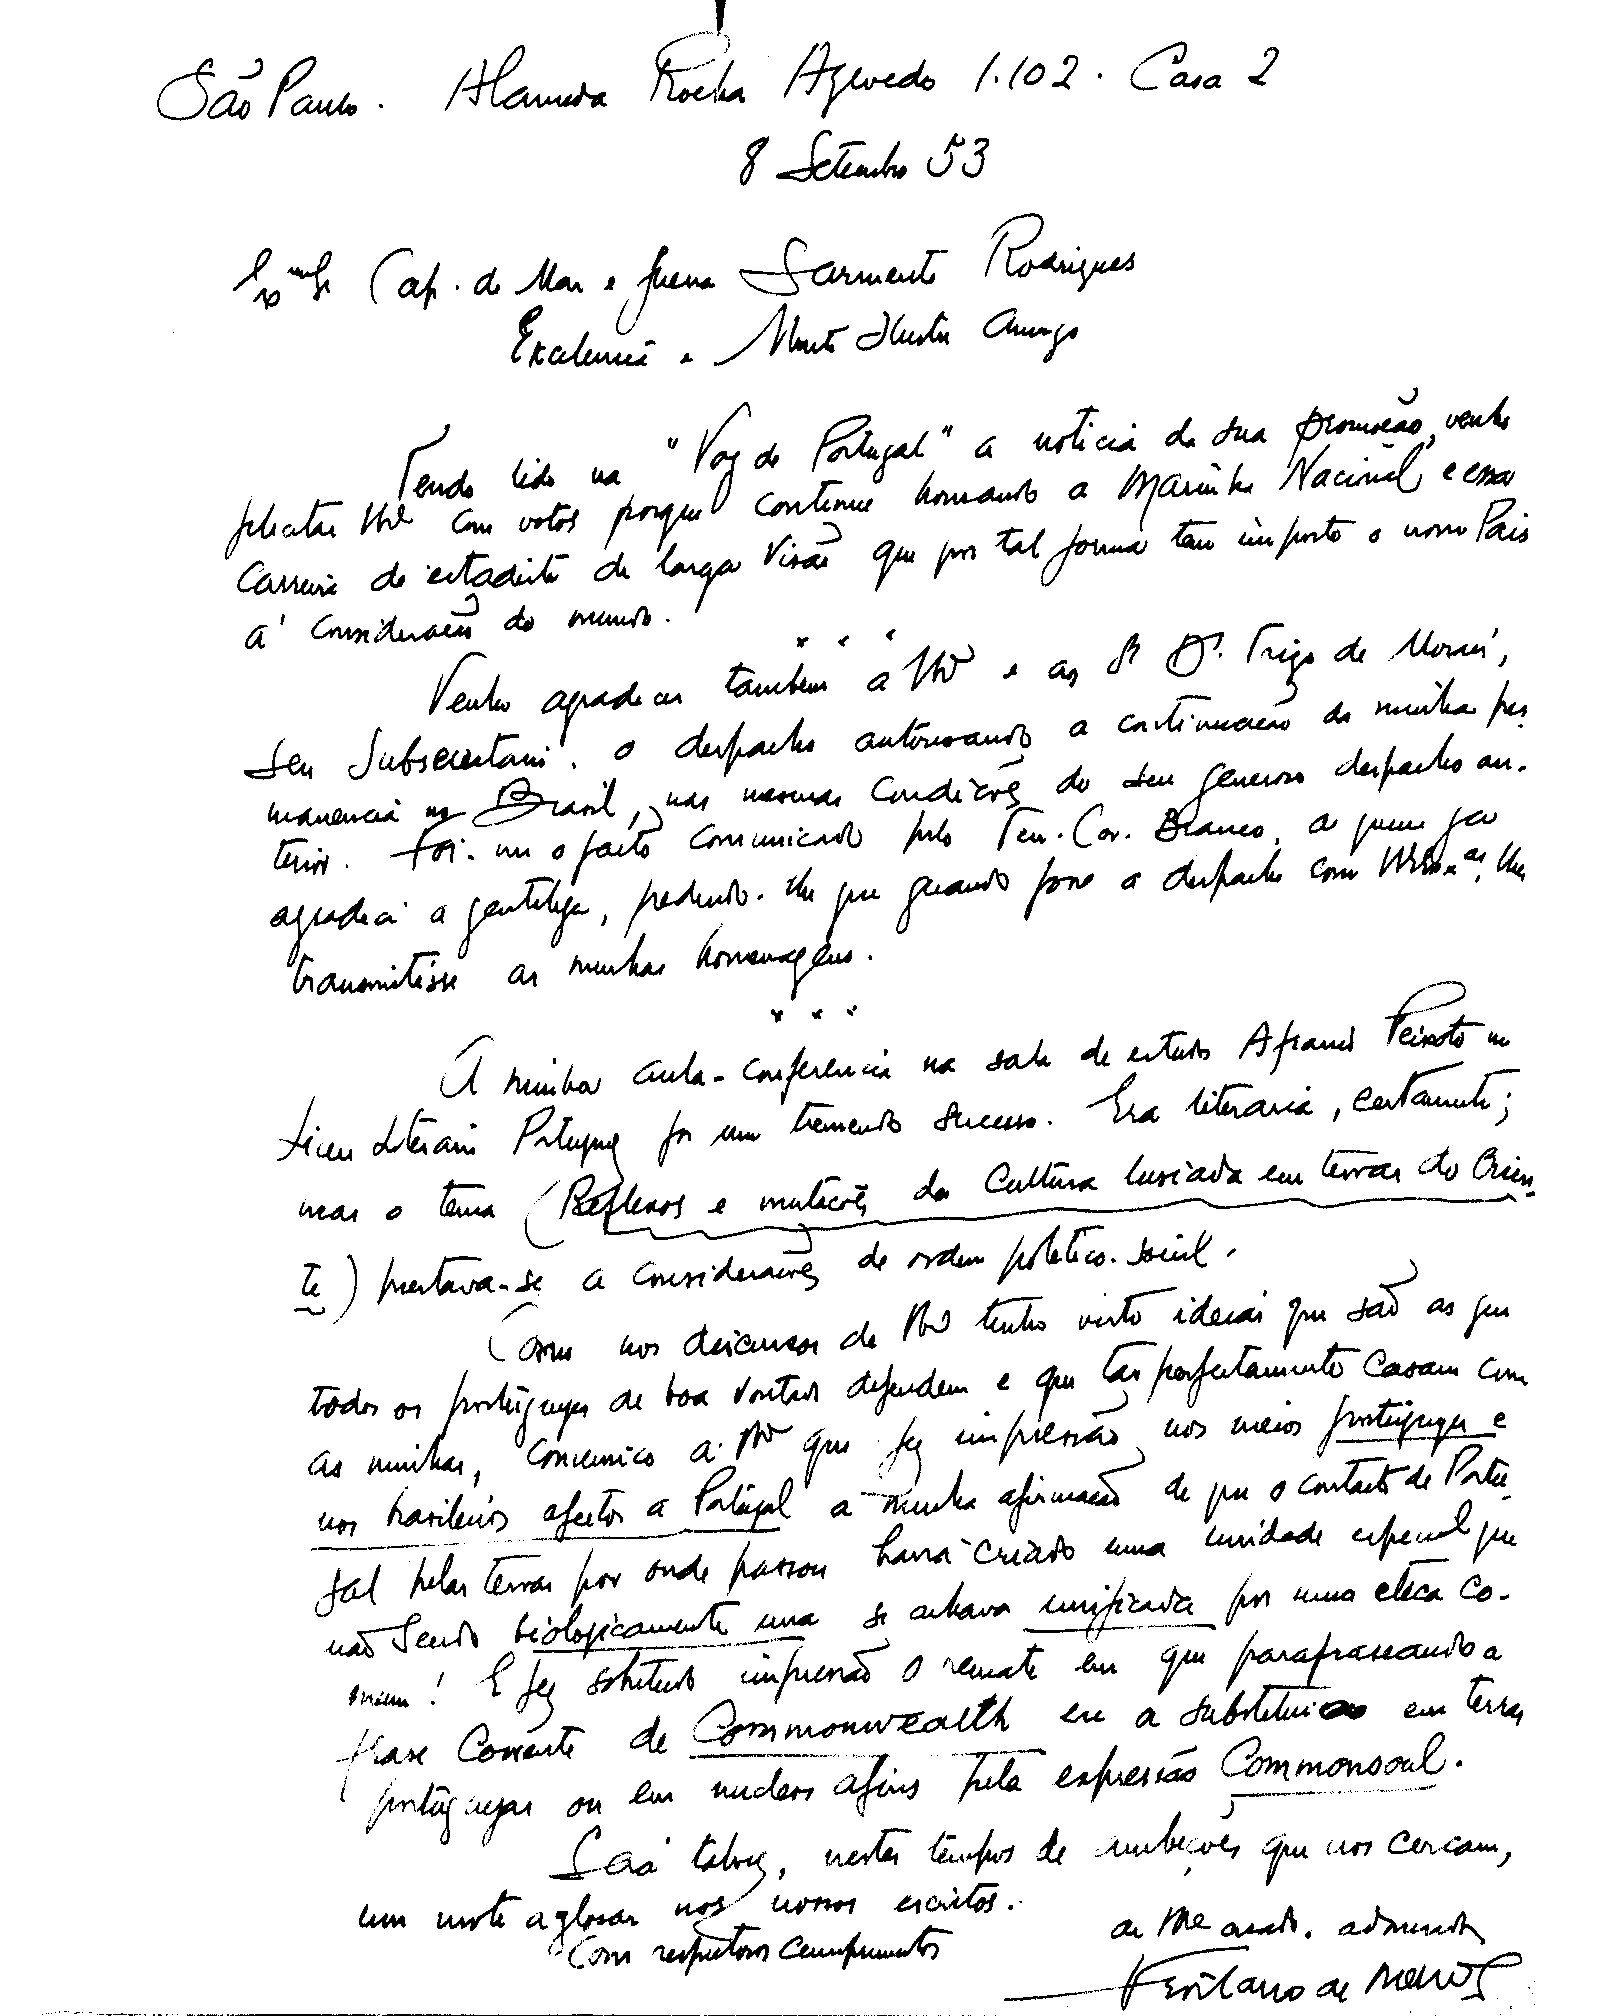 São Paulo. Alameda Rocha Azevedo 1.102. Casa 2
8 Setembro 53
Cap. de Mar e Guerra Sarmento Rodrigues
Excelencia e Muito Ilustre Amigo
Tendo lido na "Voz de Portugal" a noticia da sua promoção, venho
felicitar com votos porque continue honrando a Marinha Nacional e essa
carreira de estadista de larga visão que por tal forma tem imposto o nosso Pais
á consideração do mundo.
* * *
Venho agradecer tambem a e ao Sr Dr. Trigo de Morais,
seu Subsecretario. o despacho autorisando a continuação da minha per-
manencia no Brasil, nas mesmas condições do seu generoso despacho an-
terior. Foi-me o facto comunicado pelo Ten. Cor. Branco, a quem já
agradeci a gentileza, pedindo-lhe que quando fosse a despacho com lhes
transmitisse as minhas homenagens.
* * *
A minha aula-conferencia na sala de estudos Afranio Peixoto no
Liceu Literario Portuguez foi um tremendo sucesso. Era literaria, certamente;
mas o tema (Reflexos e mutações da Cultura lusiada em terras do Orien-
te) prestava-se a considerações de ordem politico-social.
Como nos discursos de tenho visto ideias que são as que
todos os portuguezes de boa vontade defendem e que tão perfeitamente casam com
as minhas, comunico a que fez impressão nos meios portuguezes e
nos brasileiros afectos a Portugal a minha afirmação de que o contacto de Portu-
gal pelas terras por onde passou havia criado uma unidade especial que
não sendo biologicamente una se achava unificada por uma etica co-
mum! E fez sobretudo impressão o remate em que parafraseando a
frase corrente de Commonwealth eu a substituia em terras
portuguezas ou em nucleos afins pela expressão Commonsoul.
Será talvez, nestes tempos de ambições que nos cercam,
um mote a glosar nos nossos escritos.
Com respeitosos cumprimentos
de admirador